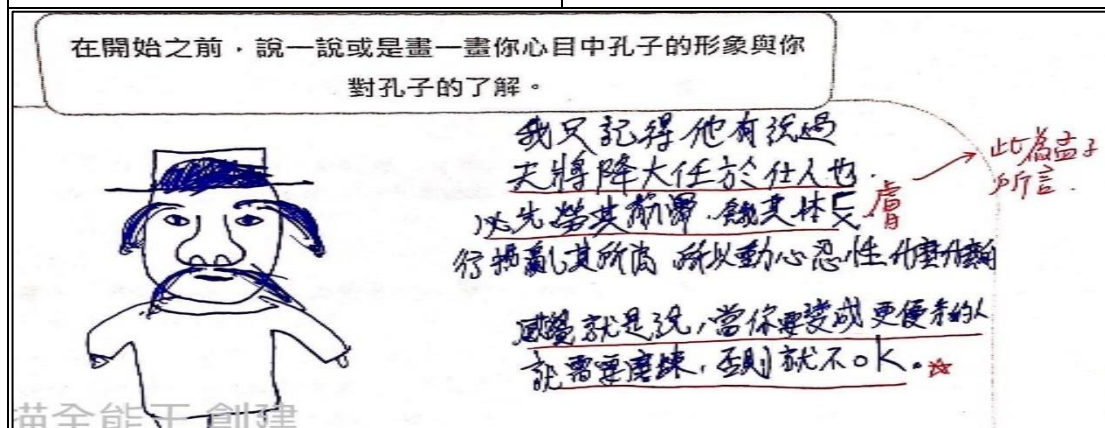 在開始之前，說一說或是畫一畫你心目中孔子的形象與你
對孔子的了解。
我只記得他有說過
天將降大任於仕人也．
必先勞其筋骨．餓其体
膚
行拂亂其所為 所以動心忍性什麼什麼的
此為孟子
所言．
感覺就是說，當你要變成更優秀的人
就需要磨練，否則就不OK。
描全能王 創建